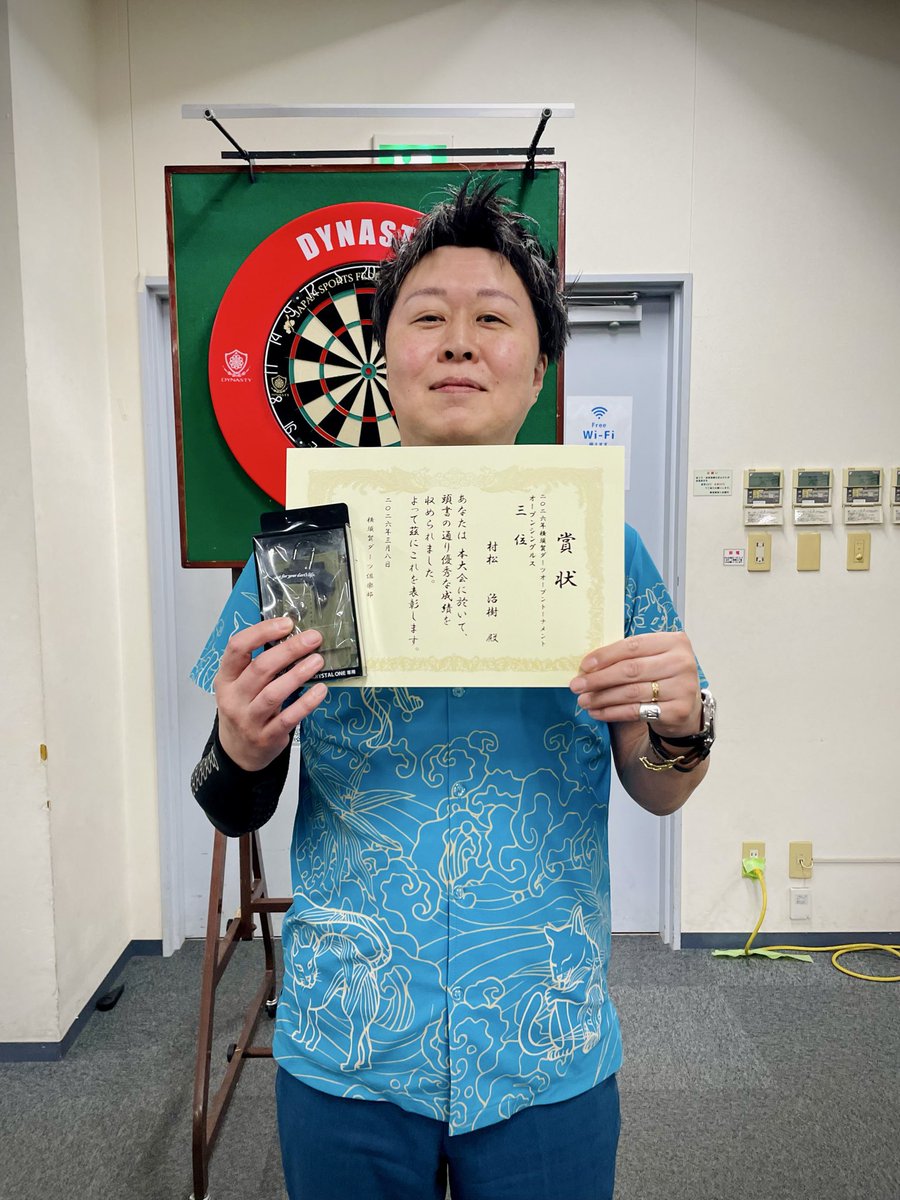 DYNAST
JAPAN SPORTS
DYNASTY
20
賞状
二〇二六年横須賀ダーツオープントーナメント
オープンシングルス
三位
村松 治樹 殿
あなたは、本大会に於いて、
頭書の通り優秀な成績を
収められました。
よって茲にこれを表彰します。
二〇二六年三月八日
横須賀ダーツ倶楽部
for your Darts life.
CRYSTAL ONE 専用
Free
Wi-Fi